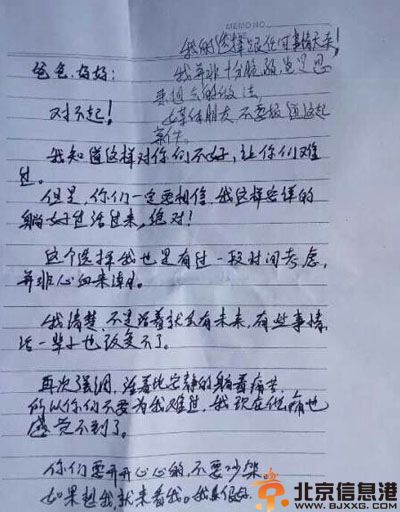 MEMO NO.
我的选择跟任何事情无关!
我并非十分脆弱,也是思
爸爸,妈妈:
对不起!
不要报道这起
案件。
我知道这样对你们不好,让你们难
过。
但是,你们一定要相信,我这样安详的
躺好过活过来,绝对!
这个选择我也是有过一段时间考虑,
并非心血来潮。
我清楚,不是活着就会有未来,有些事情,
活一辈子也改变不了。
再次强调,活着比安静的躺着痛苦,
所以你们不要为我难过,我现在什么痛也
感觉不到了。
你们要开开心心的,不要吵架。
如果想我就来看我。我真很好。
北京信息港
WWW.BJXXG.COM